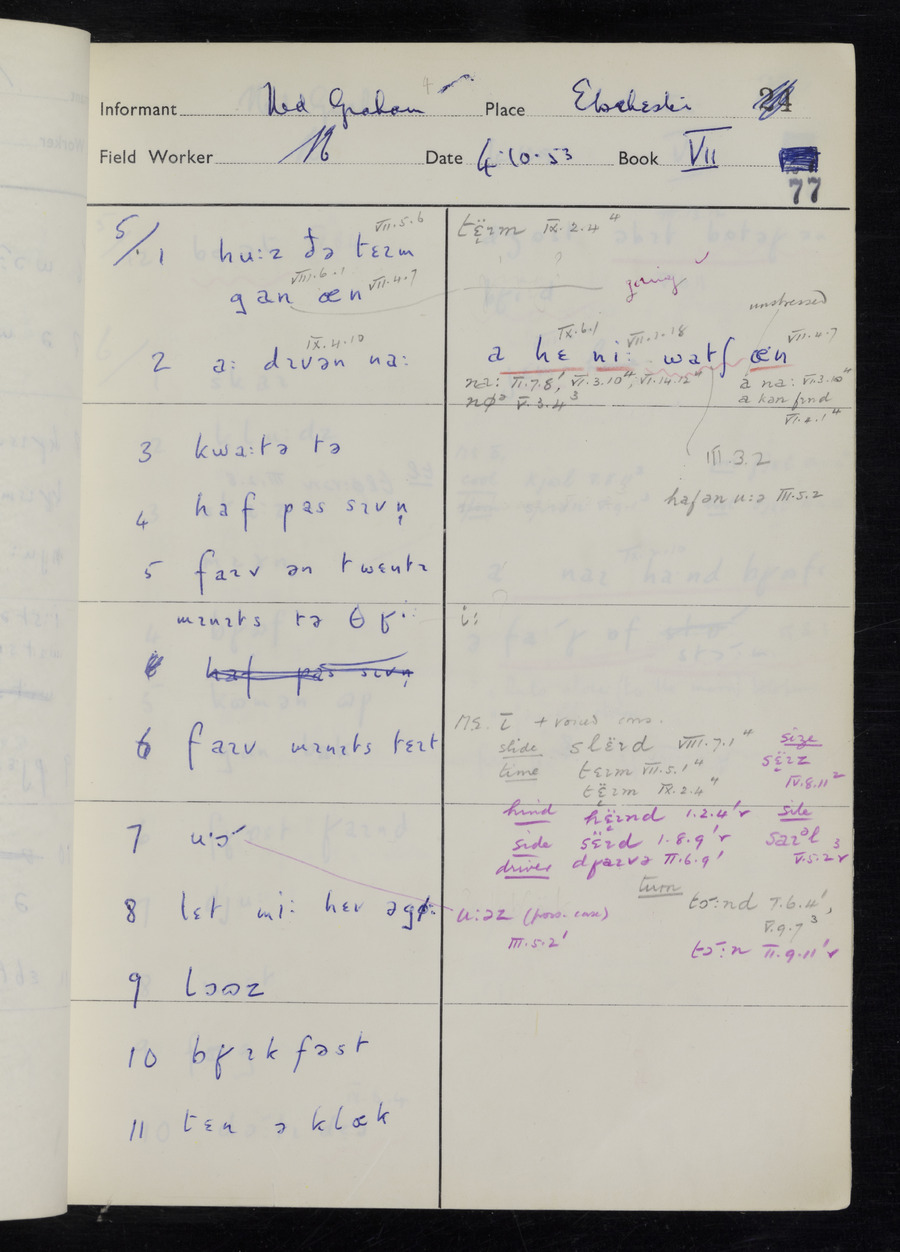 Informant Ned Graham Place Ebchester
Field Worker Date 4·10·53 Book VII
77
5/1 hu:z ðə tɛɪm VII.5.6
gan æn VIII.6.1 VII.4.7
2 a: dɪvən na: IX.4.10
3 kwa:tə tə
4 haf pas sɪvn̩
5 faɪv ən twɛntɪ
mɪnɪts tə θʁi:
haf pas sɪvn̩
6 faɪv mɪnɪts tɛɪt
7 u:ɔ
8 lɛt mi: hɛv əgø:
9 lɔəz
10 bʁɛkfəst
11 tɛn ə klæk
tɛ̈ɪm IX.2.4"
going
unstressed
a hɛ ni: watʃ æn IX.6.1 VII.1.18 VII.4.7
na: II.7.8', VI.3.10", VI.14.12" a na: VI.3.10"
nøə V.3.4³ a kan fɪnd
VI.2.1"
III.3.2
hafən u:ə III.5.2
i:
ME ī + voiced cons.
slide slɛ̈ɪd VIII.7.1" size
time tɛɪm VII.5.1" sɛ̈ɪz
tɛ̈ɪm IX.2.4" IV.8.11²
hind hɛ̈ɪnd 1.2.4'r sile
side sɛ̈ɪd 1.8.9'r saɪəl
drives dʁaɪvə II.6.9' V.5.2r³
turn tɔ:nd I.6.4',
V.9.7³
u:əz (poss. case)
III.5.2' tɔ:n II.9.11'r